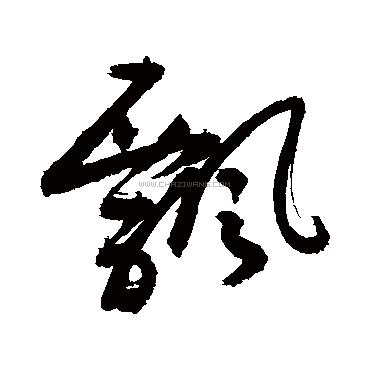 飄
WWW.CHAZIWANG.COM